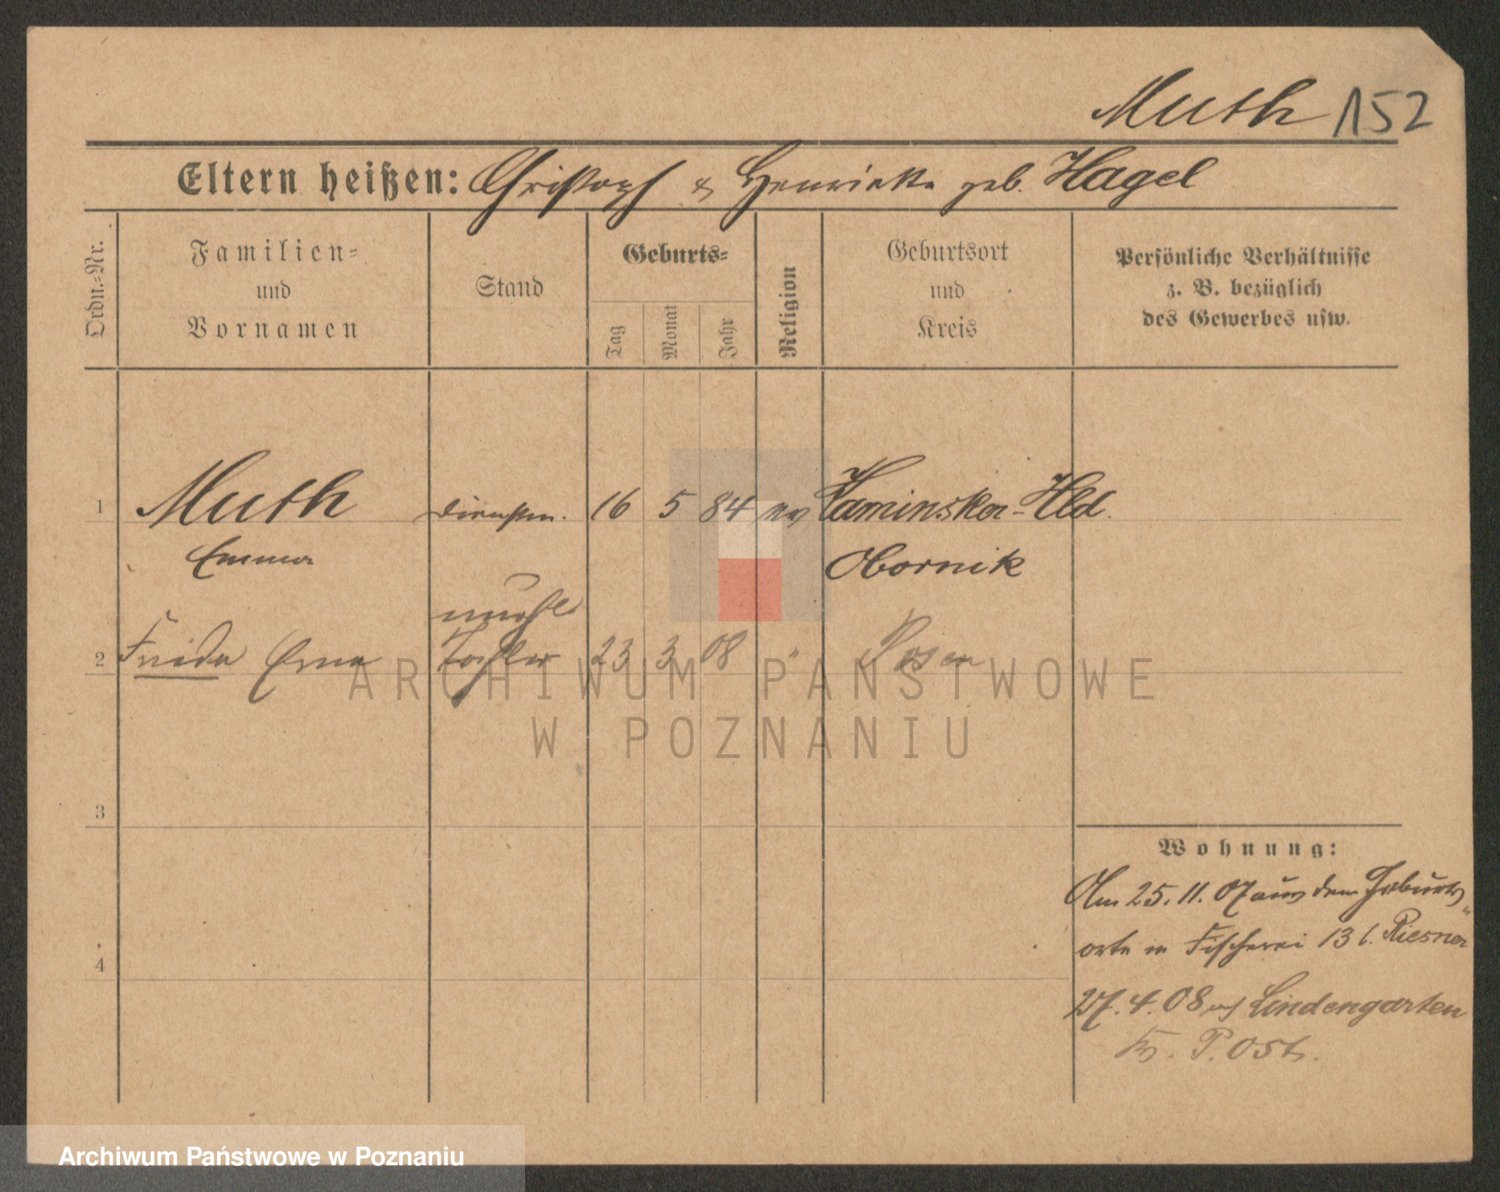 Muth 152
Eltern heißen: Christoph & Henriette geb. Hagel
Ordn.-Nr.
Familien-
und
Vornamen
Stand
Geburts-
Tag
Monat
Jahr
Religion
Geburtsort
und
Kreis
Persönliche Verhältnisse
z. B. bezüglich
des Gewerbes usw.
1 Muth Dienstm. 16 5 84 ev Kaminsker-Hld.
Emma Obornik
unehl.
2 Frieda Erna Tochter 23 3 08 " Posen
ARCHIWUM PAŃSTWOWE
W POZNANIU
3
Wohnung:
Am 25.11.07 aus dem Geburts-
orte in Fischerei 13 b. Riesner
4
27.4.08 nach Lindengarten
Kr. P. Ost.
Archiwum Państwowe w Poznaniu